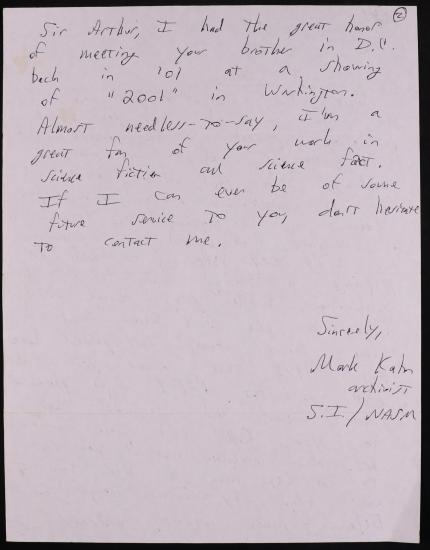 2
Sir Arthur, I had the great honor
of meeting your brother in D.C.
back in '01 at a showing
of "2001" in Washington.
Almost needless-to-say, I'm a
great fan of your work in
science fiction and science fact.
If I can ever be of some
future service to you, don't hesitate
to contact me.
Sincerely,
Mark Kahn
archivist
S.I./NASM